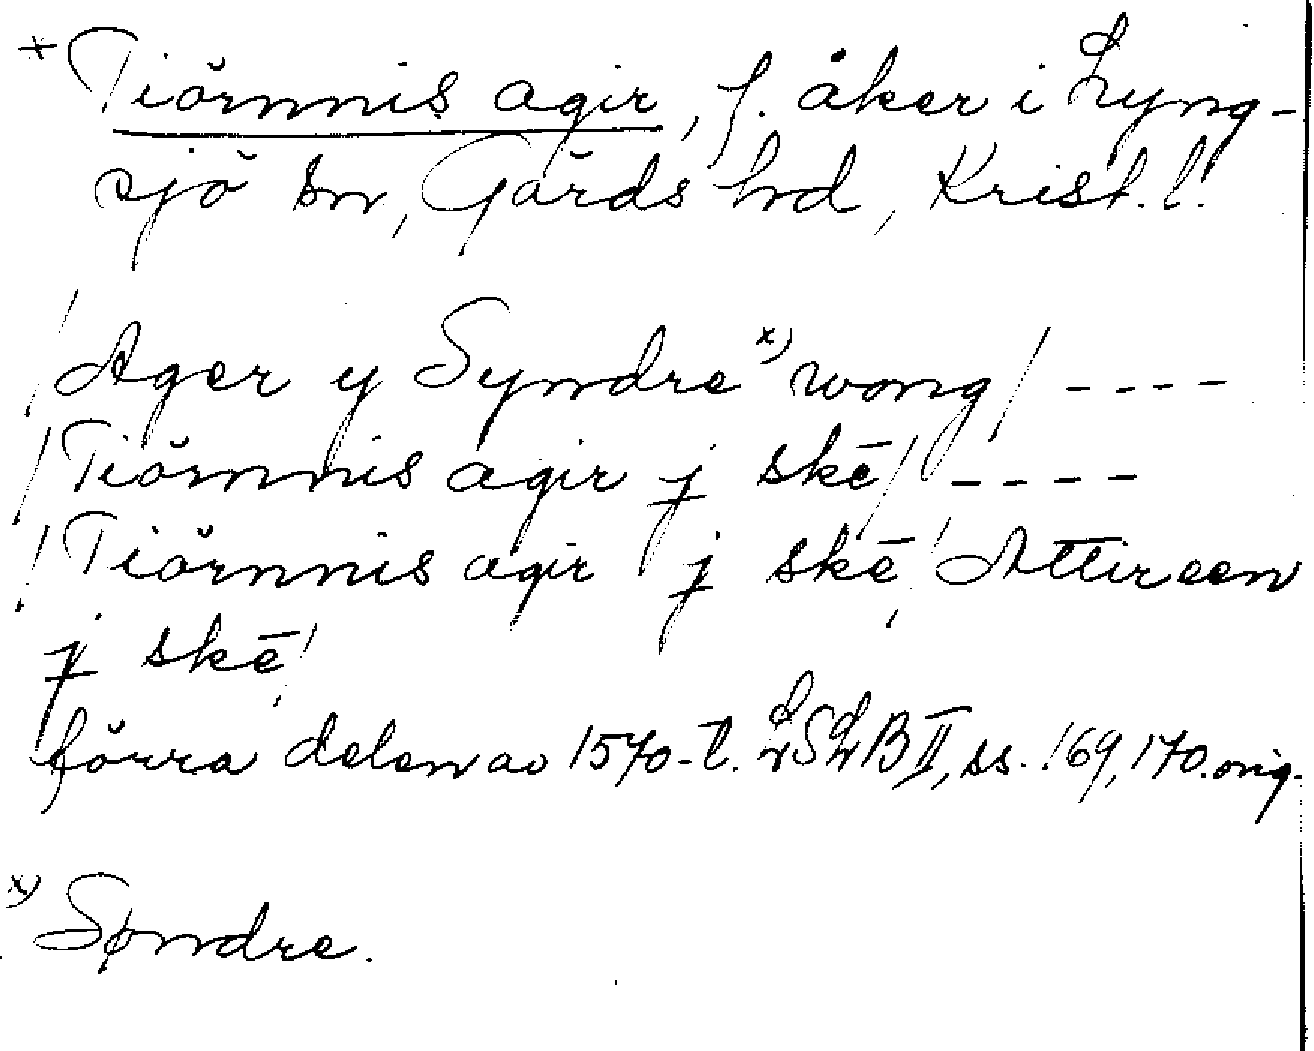 * Tiörnnis agir, f. åker i Lyng-
sjö sn, Gärds hrd, Krist. l.
/Ager y Syndre x) wong/ ----
/Tiörnnis agir j skē/ ----
/Tiörnnis agir j skē/ Attir een
j skē/
förra delen av 1570-t. LSLB II, ss. 169, 170. orig.
x) Søndre.